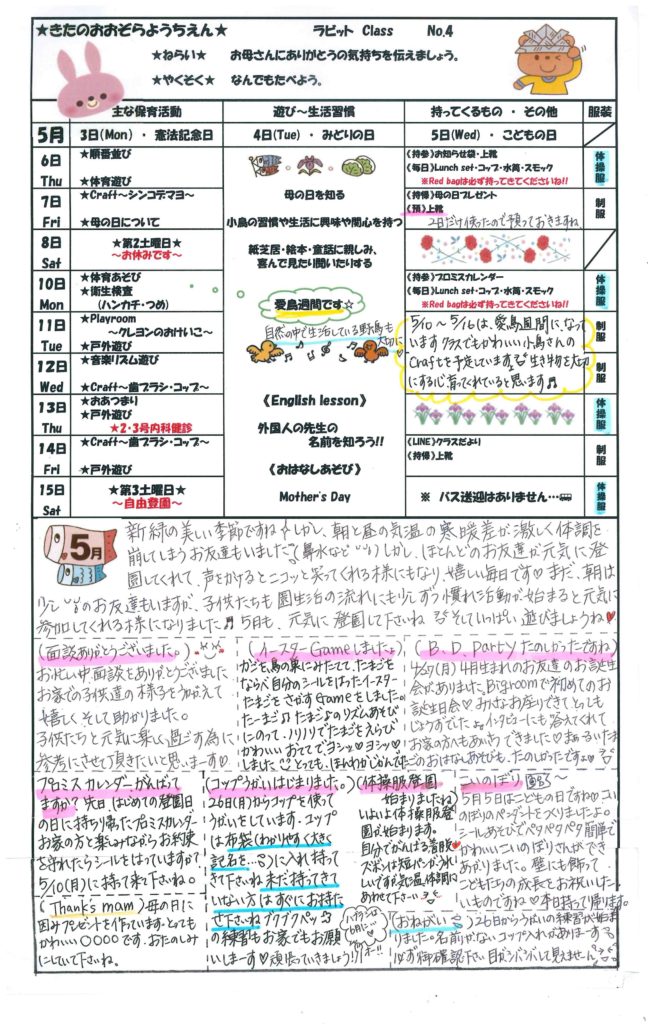 ★きたのおおぞらようちえん★　ラビット Class　No.4
★ねらい★　お母さんにありがとうの気持ちを伝えましょう。
★やくそく★　なんでもたべよう。
主な保育活動　遊び～生活習慣　持ってくるもの・その他　服装
5月　3日(Mon)・憲法記念日　4日(Tue)・みどりの日　5日(Wed)・こどもの日
6日 Thu
★順番並び
★体育遊び
《持参》お知らせ袋・上靴
《毎日》Lunch set・コップ・水筒・スモック
※Red bagは必ず持ってきてくださいね!!
体操服
7日 Fri
★Craft～シンコデマヨ～
★母の日について
母の日を知る
小鳥の習慣や生活に興味や関心を持つ
《持帰》母の日プレゼント
《預》上靴
2日だけ使ったので預っておきますね。
制服
8日 Sat
★第2土曜日★
～お休みです～
紙芝居・絵本・童話に親しみ、
喜んで見たり聞いたりする
10日 Mon
★体育あそび
★衛生検査
(ハンカチ・つめ)
愛鳥週間です☆
自然の中で生活している野鳥も
大切に♡
《持参》プロミスカレンダー
《毎日》Lunch set・コップ・水筒・スモック
※Red bagは必ず持ってきてくださいね!!
体操服
11日 Tue
★Playroom
～クレヨンのおけいこ～
★戸外遊び
5/10～5/16は、愛鳥週間になって
います クラスでもかわいい小鳥さんの
Craftを予定しています 生き物を大切
にする心 育ってくれていると思います♬
制服
12日 Wed
★音楽リズム遊び
★Craft～歯ブラシ・コップ～
制服
13日 Thu
★おあつまり
★戸外遊び
★2・3号内科健診
《English lesson》
外国人の先生の
名前を知ろう!!
体操服
14日 Fri
★Craft～歯ブラシ・コップ～
★戸外遊び
《おはなしあそび》
《LINE》クラスだより
《持帰》上靴
制服
15日 Sat
★第3土曜日★
～自由登園～
Mother's Day
※ バス送迎はありません…
体操服
5月
新緑の美しい季節ですね しかし、朝と昼の気温の寒暖差が激しく体調を
崩してしまうお友達もいました 鼻水など しかし、ほとんどのお友達が元気に登
園してくれて、声をかけるとニコッと笑ってくれる様にもなり、嬉しい毎日です♡ まだ、朝は
のお友達もいますが、子供たちも園生活の流れにも少しずつ慣れ活動が始まると元気に
参加してくれる様になりました♬ 5月も、元気に登園して下さいね そしていっぱい遊びましょうね♥
(面談ありがとうございました。)
お忙しい中面談をありがとうございました
お家での子供達の様子をうかがえて
嬉しくそして助かりました。
子供たちと元気に楽しく過ごす為に
参考にさせて頂きたいと思います♡
(イースターGameしましたよ)
カゴを鳥の巣にみたてて、たまごを
ならべ自分のシールをはったイースター
たまごをさがすgameをしました。
たまご♫ たまご♪のリズムあそび
にのって、ノリノリでたまごをえらび
かわいいおててでヨシッ♡ヨシッ♡
しました とっても、ほんわかじかんでした
(B.D.Partyたのしかったですね)
4/27(月)4月生まれのお友達のお誕生
会がありました。Bigroomで初めてのお
誕生日会♡ みんなお座りできて、とっても
じょうずでしたよ インタビューにも答えてくれて
お家の方へもあいさつできました♡ まぁるいたまご
のおはなしあそびも、たのしかったですよ♡
プロミスカレンダーがんばって
ますか? 先日、はじめての登園日
の日に持ち帰ったプロミスカレンダー
お家の方と楽しみながらお約束
を守れたらシールをはっていますか?
5/10(月)に持って来て下さいね。
(Thank's mam) 母の日に
因みプレゼントを作っています。とっても
かわいい○○○○です。おたのしみ
にしていて下さいね。
(コップうがいはじまりました。)
26日(月)からコップを使って
うがいをしています。コップ
は布袋(わかりやすく大きく
記名を…)に入れ持って
きて下さいね 未だ持ってきて
いない方はすぐにお持た
せ下さいね ブクブクペッ
の練習もお家でもお願
いしまーす♡ 頑張っていきましょう!!
(体操服登園
始まりましたね)
いよいよ体操服登
園が始まります。
自分でがんばる着脱♥
ズボンは短パンがうれし
いですが気温、体調に
あわせて下さい
こいのぼり 製作～
5月5日はこどもの日ですね♡ こい
のぼりのペンダントをつくりましたよ。
シールあそびでペタペタペタ 簡単で
かわいいこいのぼりさんができ
あがりました。壁にも飾って
こどもたちの成長をお祝いした
いものですね♡ 本日持ち帰ります。
(おねがい) 26日からうがいの練習が始ま
りました。名前がないコップ入れがありまーす
必ず御確認下さい